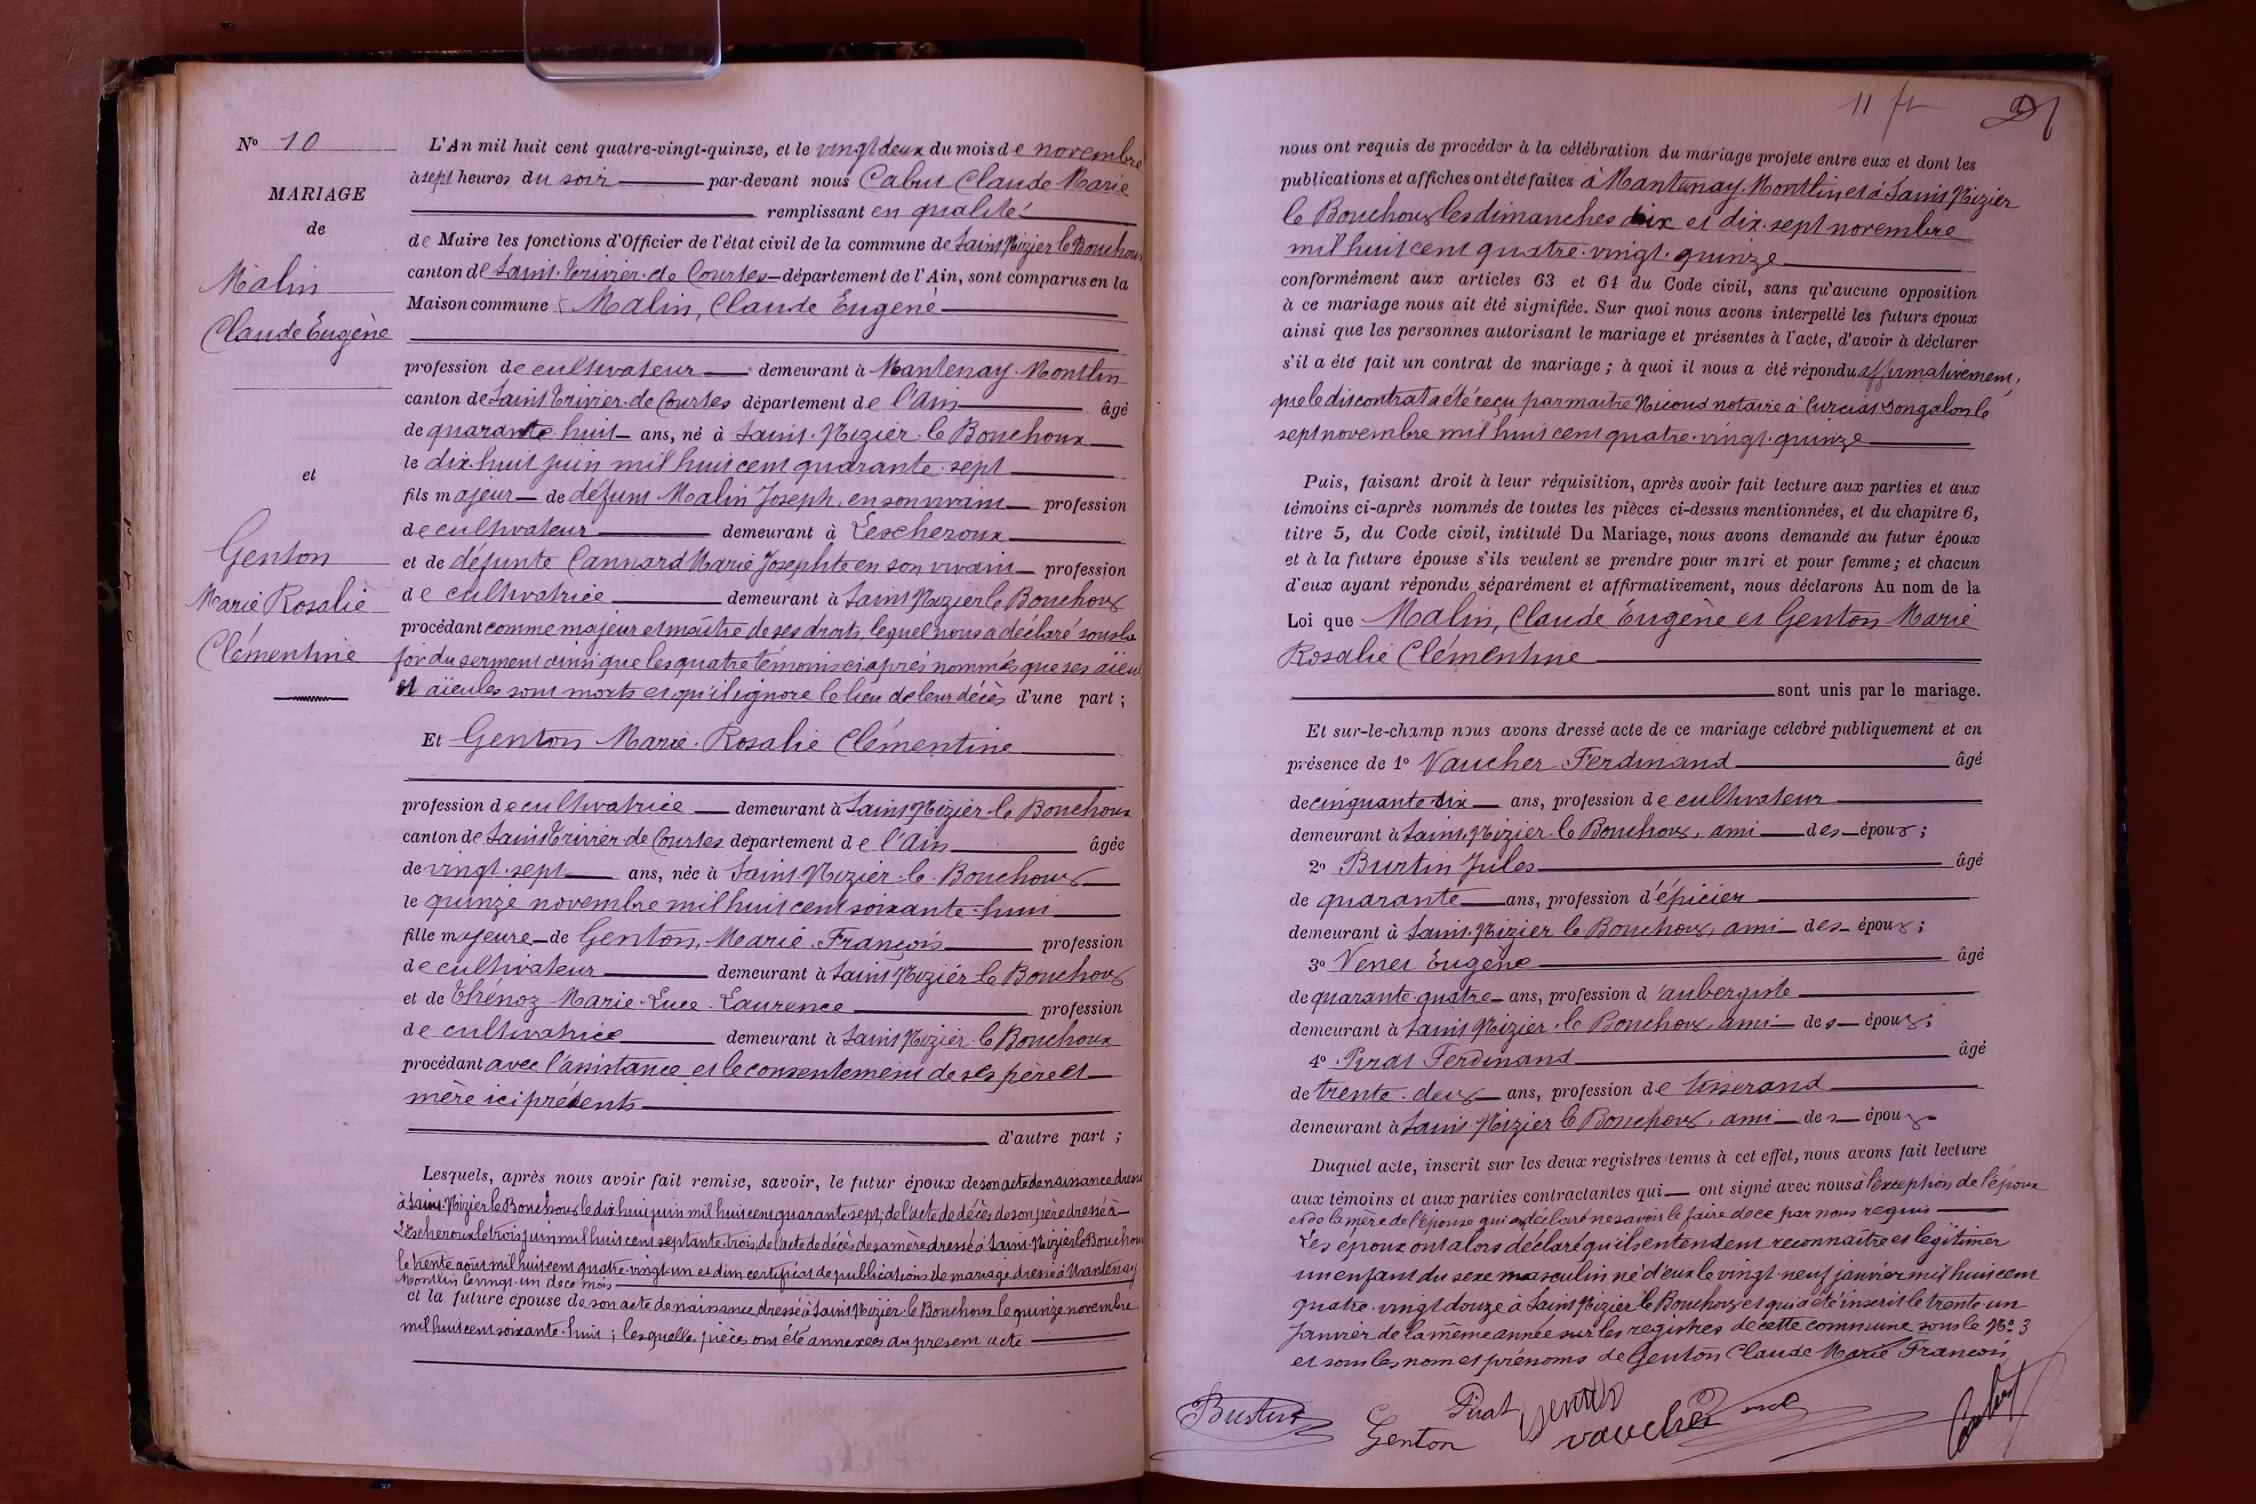 Nº 10
MARIAGE
de
Malin
Claude Eugène
et
Genton
Marie Rosalie
Clémentine
L'An mil huit cent quatre-vingt-quinze, et le vingt deux du mois de novembre
à sept heures du soir par-devant nous Cabut Claude Marie
remplissant en qualité
de Maire les fonctions d'Officier de l'état civil de la commune de Saint Nizier le Bouchoux
canton de Saint-Trivier-de Courtes département de l'Ain, sont comparus en la
Maison commune Malin, Claude Eugène
profession de cultivateur demeurant à Mantenay-Montlin
canton de Saint Trivier-de Courtes département de l'Ain âgé
de quarante-huit ans, né à Saint-Nizier-le Bouchoux
le dix-huit juin mil huit cent quarante-sept
fils majeur de défunt Malin Joseph, en son vivant profession
de cultivateur demeurant à Lescheroux
et de défunte Cannard Marie Josephte en son vivant profession
de cultivatrice demeurant à Saint Nizier le Bouchoux
procédant comme majeur et maître de ses droits, lequel nous a déclaré sous la
foi du serment ainsi que les quatre témoins ci après nommés que ses aïeux
et aïeules sont morts et qu'il ignore le lieu de leur décès d'une part ;
Et Genton Marie-Rosalie Clémentine
profession de cultivatrice demeurant à Saint Nizier-le Bouchoux
canton de Saint Trivier de Courtes département de l'Ain âgée
de vingt-sept ans, née à Saint Nizier-le-Bouchoux
le quinze novembre mil huit cent soixante-huit
fille majeure de Genton, Marie-François profession
de cultivateur demeurant à Saint Nizier le Bouchoux
et de Thénoz Marie-Luce-Laurence profession
de cultivatrice demeurant à Saint Nizier-le Bouchoux
procédant avec l'assistance et le consentement de ses père et
mère ici présents
d'autre part ;
Lesquels, après nous avoir fait remise, savoir, le futur époux de son acte de naissance dressé
à Saint-Nizier le Bouchoux le dix huit juin mil huit cent quarante sept, de l'acte de décès de son père dressé à
Lescheroux le trois juin mil huit cent septante-trois, de l'acte de décès de sa mère dressé à Saint-Nizier le Bouchoux
le trente août mil huit cent quatre-vingt-un et d'un certificat de publications de mariage dressé à Mantenay
Montlin le vingt-un de ce mois
et la future épouse de son acte de naissance dressé à Saint Nizier-le Bouchoux le quinze novembre
mil huit cent soixante-huit ; lesquelles pièces ont été annexées au présent acte
11 ft
nous ont requis de procéder à la célébration du mariage projeté entre eux et dont les
publications et affiches ont été faites à Mantenay-Montlin et à Saint Nizier
le Bouchoux les dimanches dix et dix-sept novembre
mil huit cent quatre-vingt-quinze
conformément aux articles 63 et 64 du Code civil, sans qu'aucune opposition
à ce mariage nous ait été signifiée. Sur quoi nous avons interpellé les futurs époux
ainsi que les personnes autorisant le mariage et présentes à l'acte, d'avoir à déclarer
s'il a été fait un contrat de mariage ; à quoi il nous a été répondu affirmativement,
que le dis contrat a été reçu par maître Nicoud notaire à Curciat Dongalon le
sept novembre mil huit cent quatre-vingt-quinze
Puis, faisant droit à leur réquisition, après avoir fait lecture aux parties et aux
témoins ci-après nommés de toutes les pièces ci-dessus mentionnées, et du chapitre 6,
titre 5, du Code civil, intitulé Du Mariage, nous avons demandé au futur époux
et à la future épouse s'ils veulent se prendre pour mari et pour femme; et chacun
d'eux ayant répondu séparément et affirmativement, nous déclarons Au nom de la
Loi que Malin, Claude Eugène et Genton Marie
Rosalie Clémentine
sont unis par le mariage.
Et sur-le-champ nous avons dressé acte de ce mariage célébré publiquement et en
présence de 1º Vaucher Ferdinand âgé
de cinquante-dix ans, profession de cultivateur
demeurant à Saint-Nizier-le Bouchoux, ami des époux ;
2º Burtin Jules âgé
de quarante ans, profession d'épicier
demeurant à Saint-Nizier le Bouchoux, ami des époux ;
3º Venet Eugène âgé
de quarante-quatre ans, profession d'aubergiste
demeurant à Saint Nizier-le Bouchoux, ami des époux ;
4º Pirat Ferdinand âgé
de trente-deux ans, profession de tisserand
demeurant à Saint-Nizier le Bouchoux, ami des époux
Duquel acte, inscrit sur les deux registres tenus à cet effet, nous avons fait lecture
aux témoins et aux parties contractantes qui ont signé avec nous à l'exception de l'époux
et de la mère de l'épouse qui ont déclaré ne savoir le faire de ce par nous requis
Les époux ont alors déclaré qu'ils entendent reconnaître et légitimer
un enfant du sexe masculin né d'eux le vingt-neuf janvier mil huit cent
quatre-vingt douze à Saint Nizier le Bouchoux et qui a été inscrit le trente-un
Janvier de la même année sur les registres de cette commune sous le Nº 3
et sous les nom et prénoms de Genton Claude Marie François
Burtin
Genton
Pirat
Vaucher
Cabut